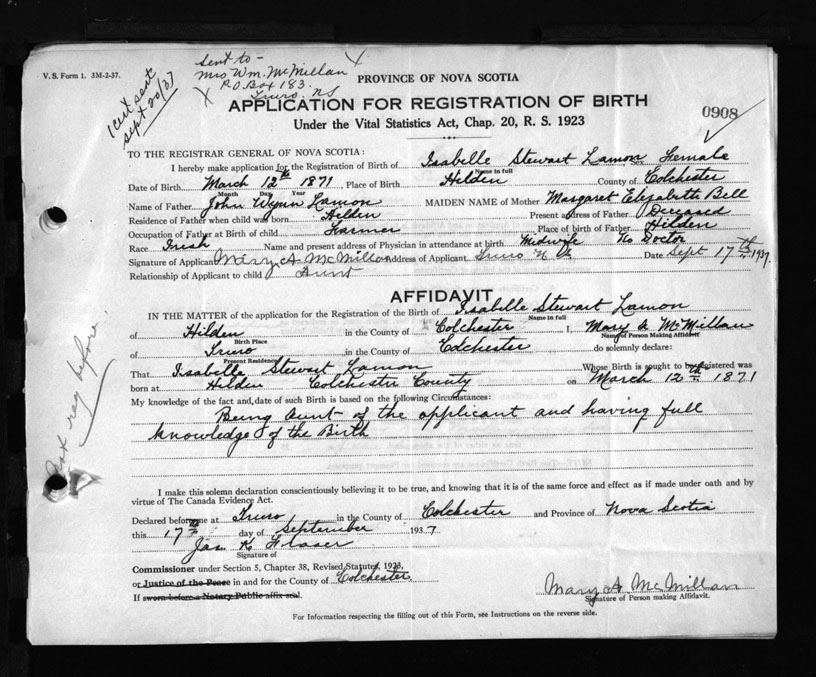 V. S. Form 1. 3M-2-37.
1 Cert sent
Sept 20/37
Sent to -
Mrs Wm. McMillan
P.O Box 183.
Truro. NS
X
X
PROVINCE OF NOVA SCOTIA
APPLICATION FOR REGISTRATION OF BIRTH
0908
Under the Vital Statistics Act, Chap. 20, R. S. 1923
TO THE REGISTRAR GENERAL OF NOVA SCOTIA:
I hereby make application for the Registration of Birth of Isabelle Stewart Lamon Sex Female
Name in full
Date of Birth March 12th 1871, Place of Birth Hilden County of Colchester
Month Day Year
Name of Father John Wynn Lamon MAIDEN NAME of Mother Margaret Elizabeth Bell
Residence of Father when child was born Hilden Present address of Father Deceased
Occupation of Father at Birth of child Farmer Place of birth of Father Hilden
Race Irish Name and present address of Physician in attendance at birth Midwife No Doctor
Signature of Applicant Mary A McMillan Address of Applicant Truro N S Date Sept 17th 1937.
Relationship of Applicant to child Aunt
AFFIDAVIT
IN THE MATTER of the application for the Registration of the Birth of Isabelle Stewart Lamon
Name in full
of Hilden in the County of Colchester I, Mary A McMillan
Birth Place Name of Person Making Affidavit
of Truro in the County of Colchester do solemnly declare:
Present Residence
That Isabelle Stewart Lamon Whose Birth is sought to be registered was
born at Hilden Colchester County on March 12th 1871
My knowledge of the fact and date of such Birth is based on the following Circumstances:
Being Aunt of the applicant and having full
knowledge of the Birth
Not reg before.
I make this solemn declaration conscientiously believing it to be true, and knowing that it is of the same force and effect as if made under oath and by
virtue of The Canada Evidence Act.
Declared before me at Truro in the County of Colchester and Province of Nova Scotia
this 17th day of September 1937
Jas K Fraser
Signature of
Commissioner under Section 5, Chapter 38, Revised Statutes, 1923,
or Justice of the Peace in and for the County of Colchester
If sworn before a Notary Public affix seal.
Mary A McMillan
Signature of Person making Affidavit.
For Information respecting the filling out of this Form, see Instructions on the reverse side.